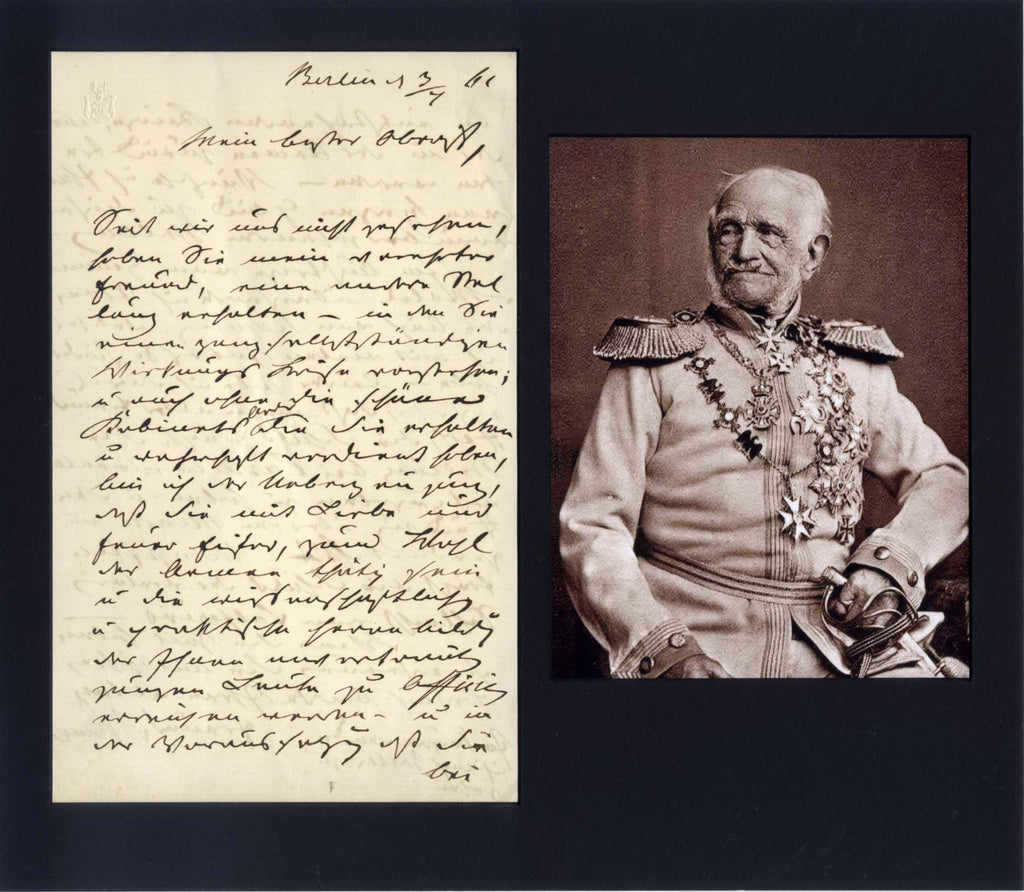 Berlin d 3/7 61
Mein bester Obrist,
Seit wir uns nicht gesehen,
haben Sie mein verehrter
Freund, eine andere Stel
lung erhalten – in der Sie
einem ganz selbstständigen
Wirkungs Kreise vorstehen;
u auch ohne die schöne
Kabinets die Sie erhalten
u wahrhaft verdient haben,
bin ich der Ueberzeugung,
daß Sie mit Liebe und
Feuer Eifer, zum Wohl
der Armee thätig sein
u die wissenschaftliche
u praktische Heranbildg
der Ihnen anvertrauten
jungen Leute zu Offizier
erreichen werden – u in
der Voraussetzg daß Sie
bei